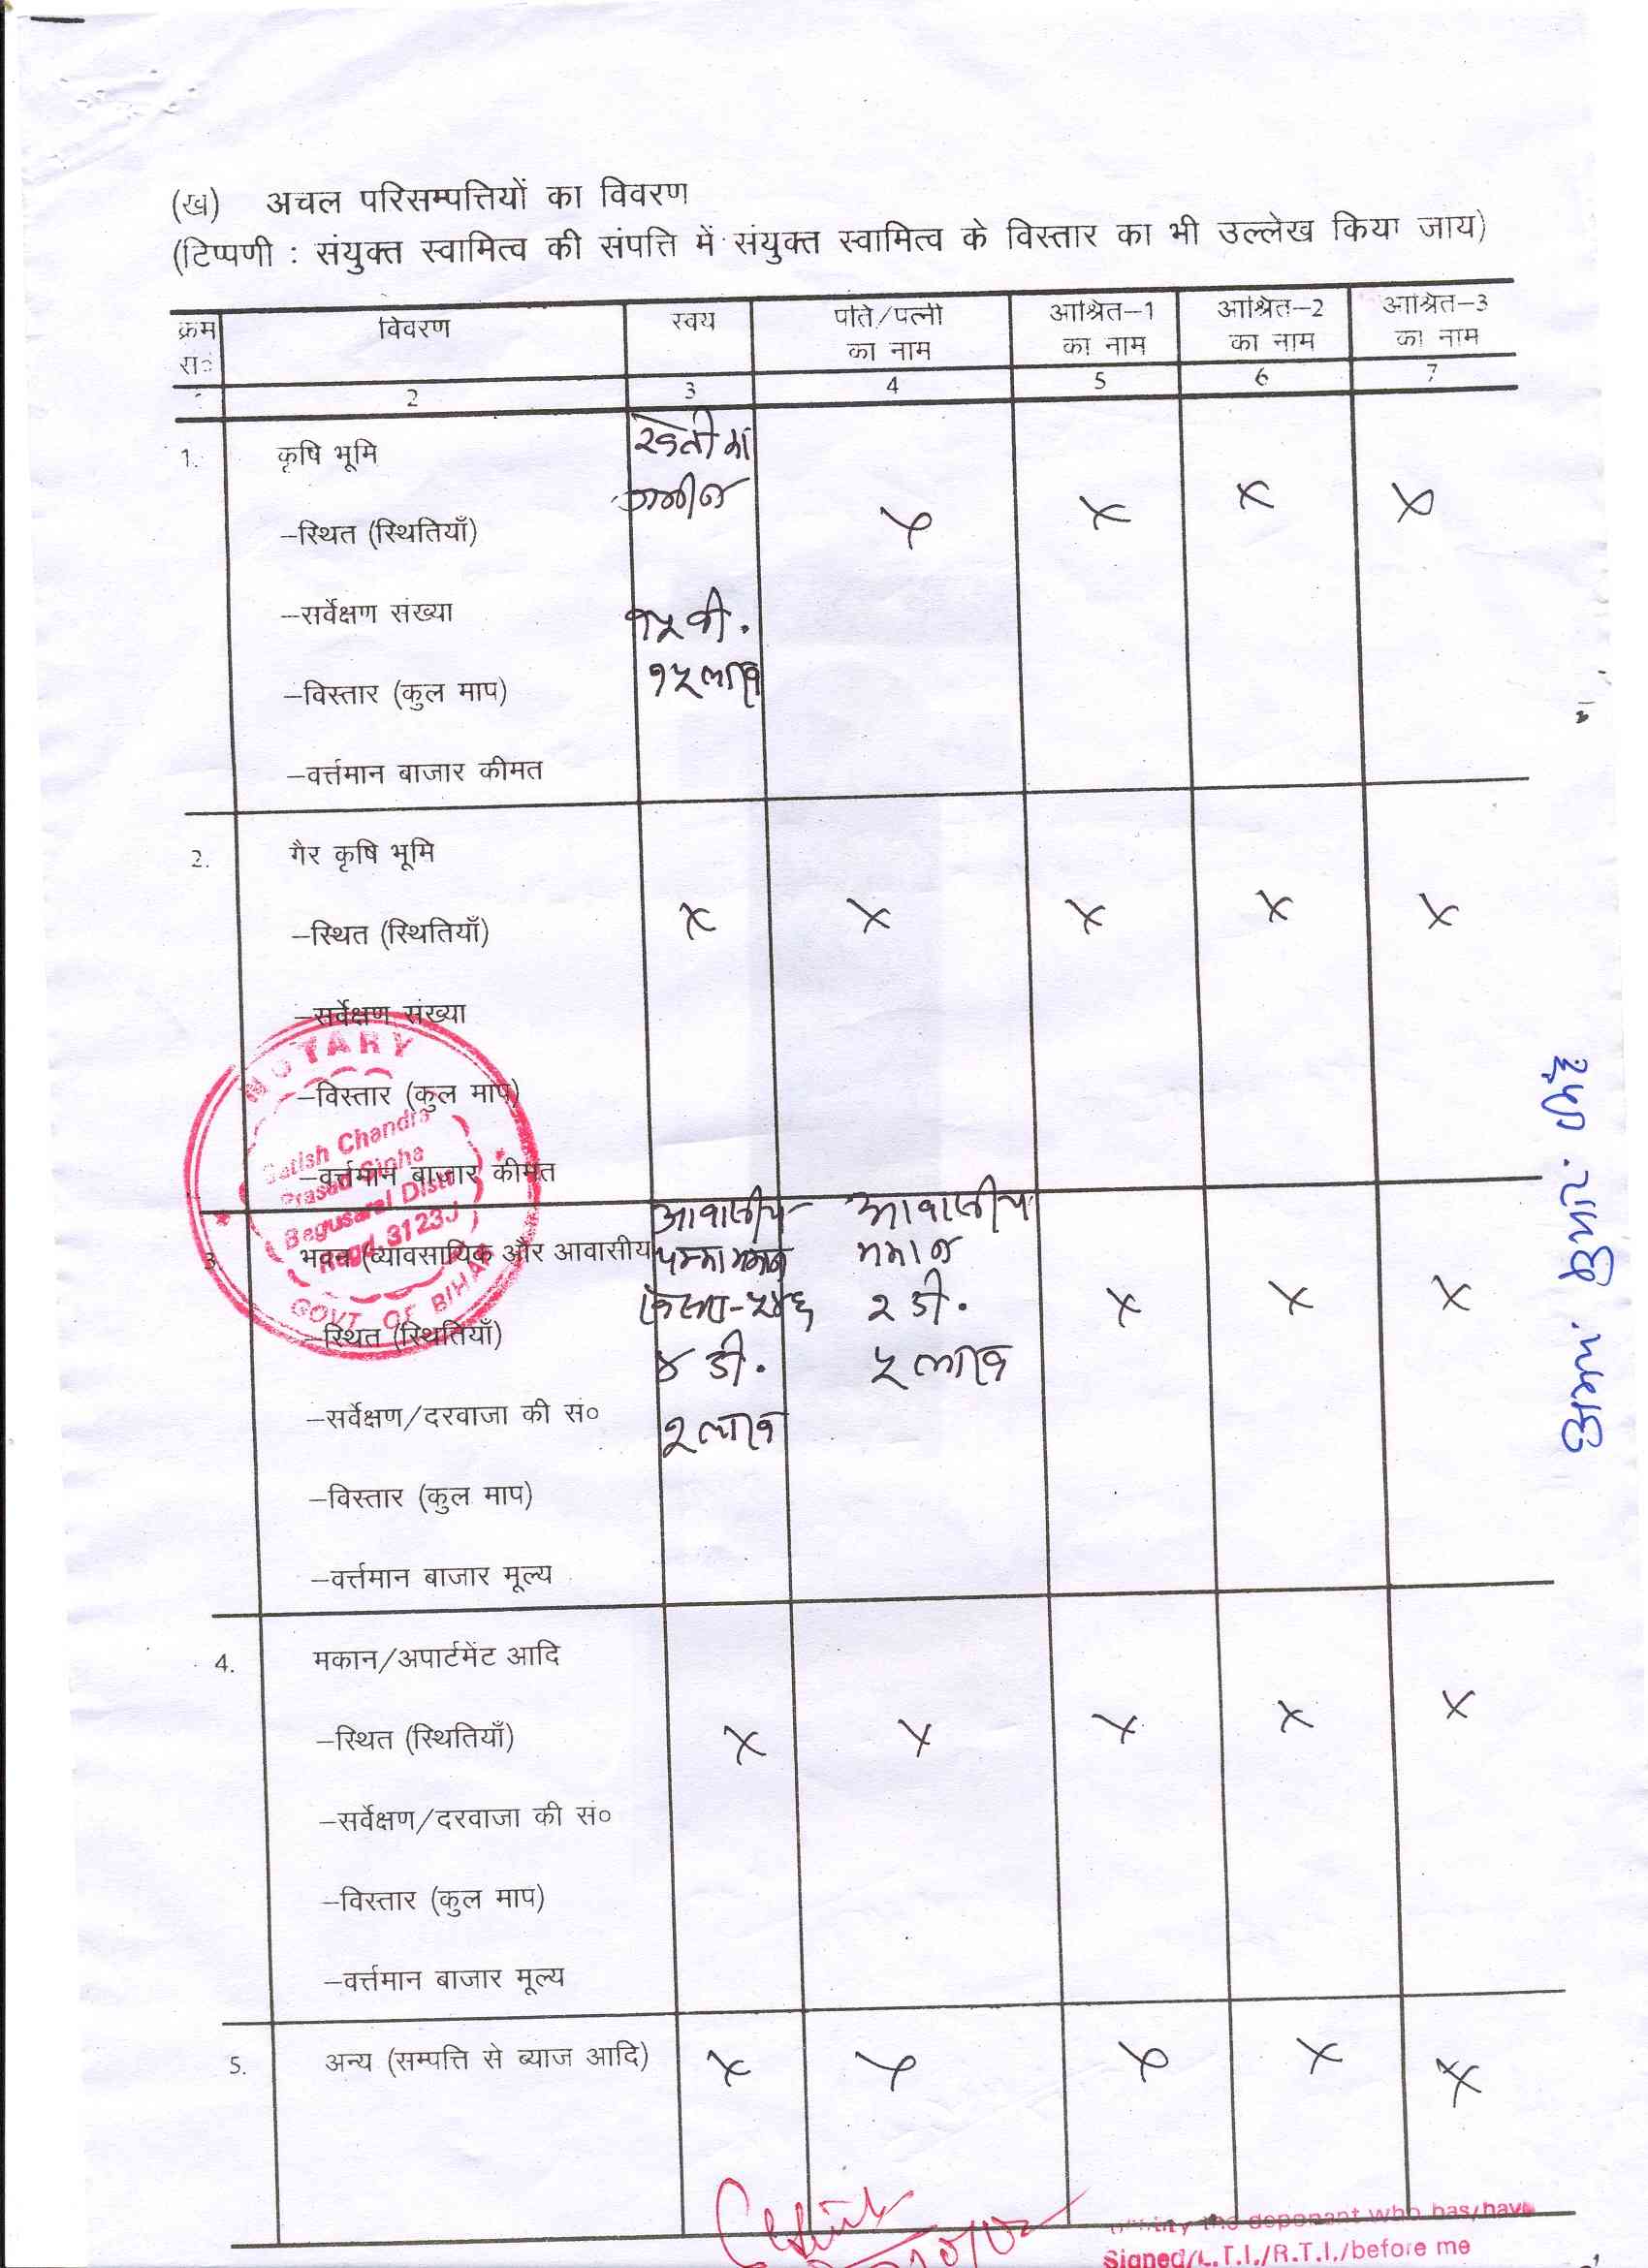 (ख) अचल परिसम्पत्तियों का विवरण
(टिप्पणी : संयुक्त स्वामित्व की संपत्ति में संयुक्त स्वामित्व के विस्तार का भी उल्लेख किया जाय)
क्रम सं० विवरण स्वयं पति/पत्नी का नाम आश्रित–1 का नाम आश्रित–2 का नाम आश्रित–3 का नाम
2 3 4 5 6 7
1. कृषि भूमि खेती का
जमीन
–स्थित (स्थितियाँ) x x x x
–सर्वेक्षण संख्या १५ बी.
–विस्तार (कुल माप) १५ लाख
–वर्त्तमान बाजार कीमत
2. गैर कृषि भूमि
–स्थित (स्थितियाँ) x x x x x
–सर्वेक्षण संख्या
–विस्तार (कुल माप)
–वर्त्तमान बाजार कीमत
NOTARY
Satish Chandra
Prasad Sinha
Begusarai Distt
Regd. 3123
GOVT OF BIHAR
3. भवन (व्यावसायिक और आवासीय आवासीय पक्का मकान आवासीय मकान
–स्थित (स्थितियाँ) ४ डी. २ डी. x x x
–सर्वेक्षण/दरवाजा की सं० २ लाख ५ लाख
–विस्तार (कुल माप)
–वर्त्तमान बाजार मूल्य
4. मकान/अपार्टमेंट आदि
–स्थित (स्थितियाँ) x x x x x
–सर्वेक्षण/दरवाजा की सं०
–विस्तार (कुल माप)
–वर्त्तमान बाजार मूल्य
5. अन्य (सम्पत्ति से ब्याज आदि) x x x x x
the deponant who has/have
Signed/L.T.I./R.T.I./before me